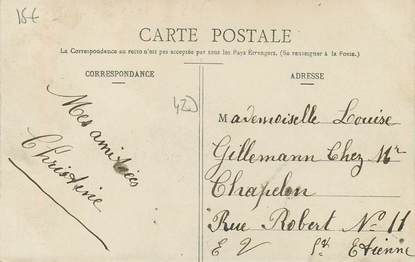 15€
CARTE POSTALE
La Correspondance au recto n'est pas acceptée par tous les Pays Étrangers. (Se renseigner à la Poste.)
CORRESPONDANCE
Mes amitiées
Christine
420
ADRESSE
Mademoiselle Louise
Gillemann Chez Mr
Chapelon
Rue Robert No 11
E V St Etienne